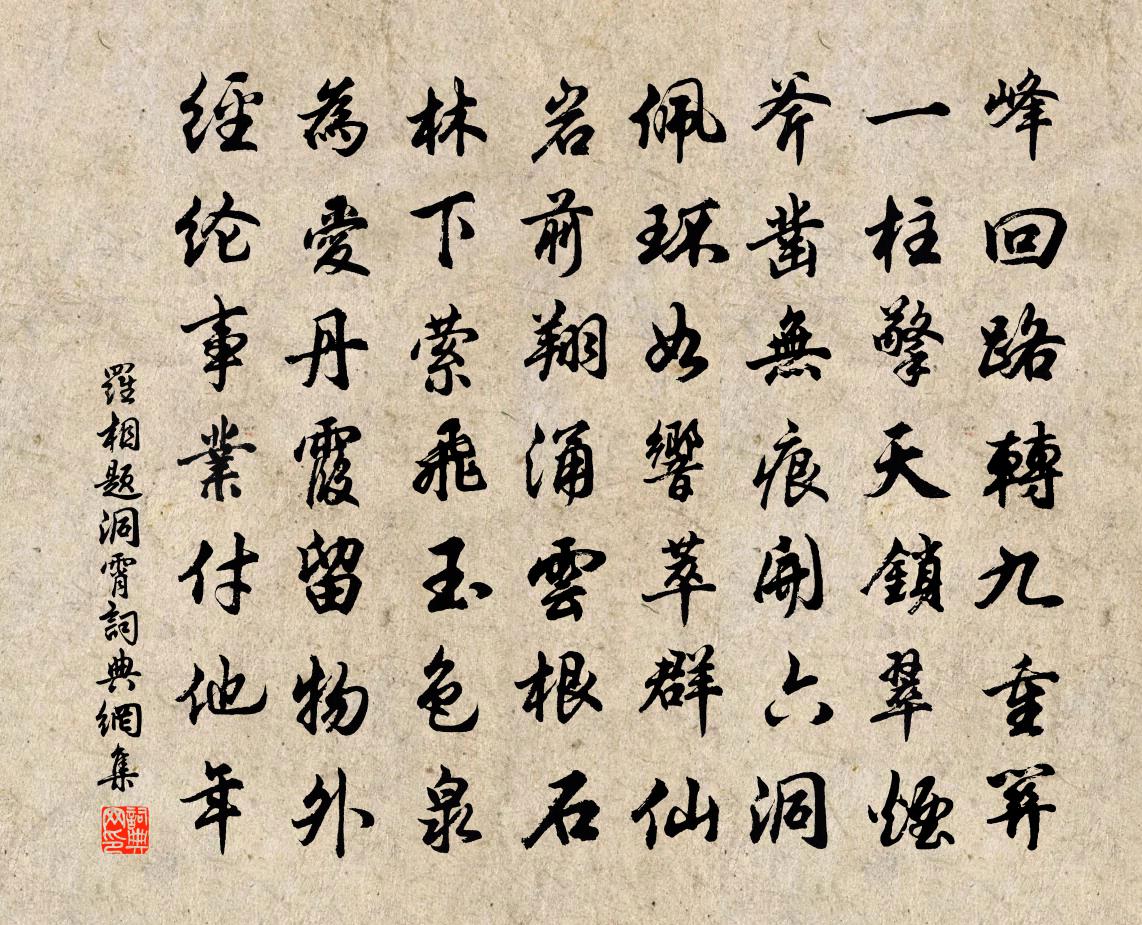 峰回路轉九重關
一柱擎天鎖翠煙
斧鑿無痕開六洞
佩環如響萃群仙
岩前翔涌雲根石
林下縈飛玉色泉
為愛丹霞留物外
經纶事業付他年
羅相題洞霄詞典網集
詞典网印